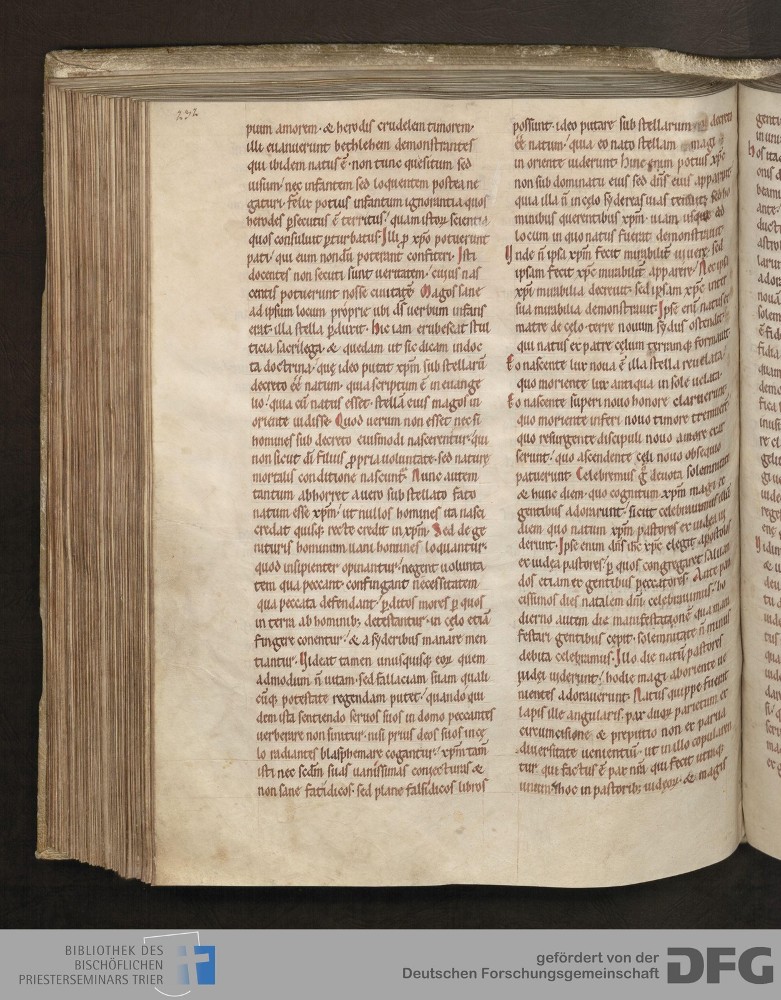 232
pium amorem · & herodis crudelem timorem ·
illi euanuerunt bethlehem demonstrantes
qui ibidem natus ē · non tunc quesitum sed
uisum / nec infantem sed loquentem postea ne
gaturi · felix potius infantum ignorantia quos
herodes ꝑsecutus ē territus / quam istoꝝ scientia
quos consuluit ꝑturbatus · Illi ꝓ xp̄o potuerunt
pati / qui eum nondū poterant confiteri · Isti
docentes non secuti sunt ueritatem / cuius nas
centis potuerunt nosse ciuitatē · Magos sane
ad ipsum locum proprie ubi d̄s uerbum infans
erat · illa stella ꝑduxit · hic iam erubescat stul
ticia sacrilega · & quedam ut sic dicam indoc
ta doctrina / quę ideo putat xp̄m sub stellarū
decreto ee natum · quia scriptum ē in euange
lio / quia cū natus esset · stellā eius magos in
oriente uidisse · Quod uerum non esset nec si
homines sub decreto eiusmodi nascerentur · qui
non sicut dī filius ꝓpria uoluntate · sed naturę
mortalis conditione nascunt᷑ · Nunc autem
tantum abhorret a uero sub stellato fato
natum esse xp̄m / ut nullos homines ita nasci
credat quisq; recte credit in xp̄m · Sed de ge
nituris hominum uani homines loquantur ·
quod insipienter opinantur / negent uolunta
tem qua peccant · confingant necessitatem
qua peccata defendant / ꝑditos mores ꝑ quos
in terra ab hominib; detestantur · in cęlo etiā
fingere conentur / & a syderibus manare men
tiantur · Videat tamen unusquisq; eoꝝ quem
admodum n̄ uitam · sed fallaciam suam quali
cūq; potestate regendam putet / quando qui
dem ista sentiendo seruos suos in domo peccantes
uerberare non sinitur · nisi prius deos suos in cę
lo radiantes blasphemare cogantur / xp̄m tam̄
isti nec scdm suas uanissimas coniecturas &
non sane fatidicos · sed plane falsidicos libros
possunt · ideo putare sub stellarum decreti
ee natum / quia eo nato stellam magi
in oriente uiderunt · hinc enim potius xp̄c
non sub dominatu eius sed dn̄s eius apparuit
quia illa n̄ in cęlo sydereas uias tenuit · sed ho
minibus querentibus xp̄m · uiam usq; ad
locum in quo natus fuerat demonstrauit ·
Unde n̄ ipsa xp̄m fecit mirabilit᷑ uiuere / sed
ipsam fecit xp̄c mirabilit᷑ apparere · Nec ipsa
xp̄i mirabilia decreuit · sed ipsam xp̄c inter
sua mirabilia demonstrauit · Ipse eni natus ex
matre de cęlo · terre nouum sydus ostendit ·
qui natus ex patre cęlum terramq; formauit ·
Eo nascente lux noua ē illa stella reuelata
quo moriente lux antiqua in sole uelata ·
Eo nascente superi nouo honore claruerunt
quo moriente inferi nouo timore tremuert
quo resurgente discipuli nouo amore exar
serunt / quo ascendente cęli nouo obsequio
patuerunt · Celebremus g̊ deuota solemnitate
& hunc diem · quo cognitum xp̄m magi ex
gentibus adorarunt · sicut celebrauimus illū
diem quo natum xp̄m pastores ex iudea ui
derunt · Ipse enim dn̄s ds̄ xp̄c elegit apostolos
ex iudęa pastores / ꝑ quos congregaret saluan
dos etiam ex gentibus peccatores · Ante pau
cissimos dies natalem dn̄i celebrauimus · ho
dierno autem die manifestatione qua mani
festari gentibus cępit · solemnitate n̄ minus
debita celebramus · Illo die natū pastores
iudęi uiderunt / hodie magi ab oriente ue
nientes adorauerunt · Natus quippe fuerat
lapis ille angularis · pax duoꝝ parietum ex
circumcisione & preputio non ex parua
diuersitate uenientiū · ut in illo copularen
tur qui factus ē pax nr̄a · qui fecit utraq;
unum / hoc in pastorib; iudęoꝝ · & magis
BIBLIOTHEK DES
BISCHÖFLICHEN
PRIESTERSEMINARS TRIER
gefördert von der
Deutschen Forschungsgemeinschaft
DFG